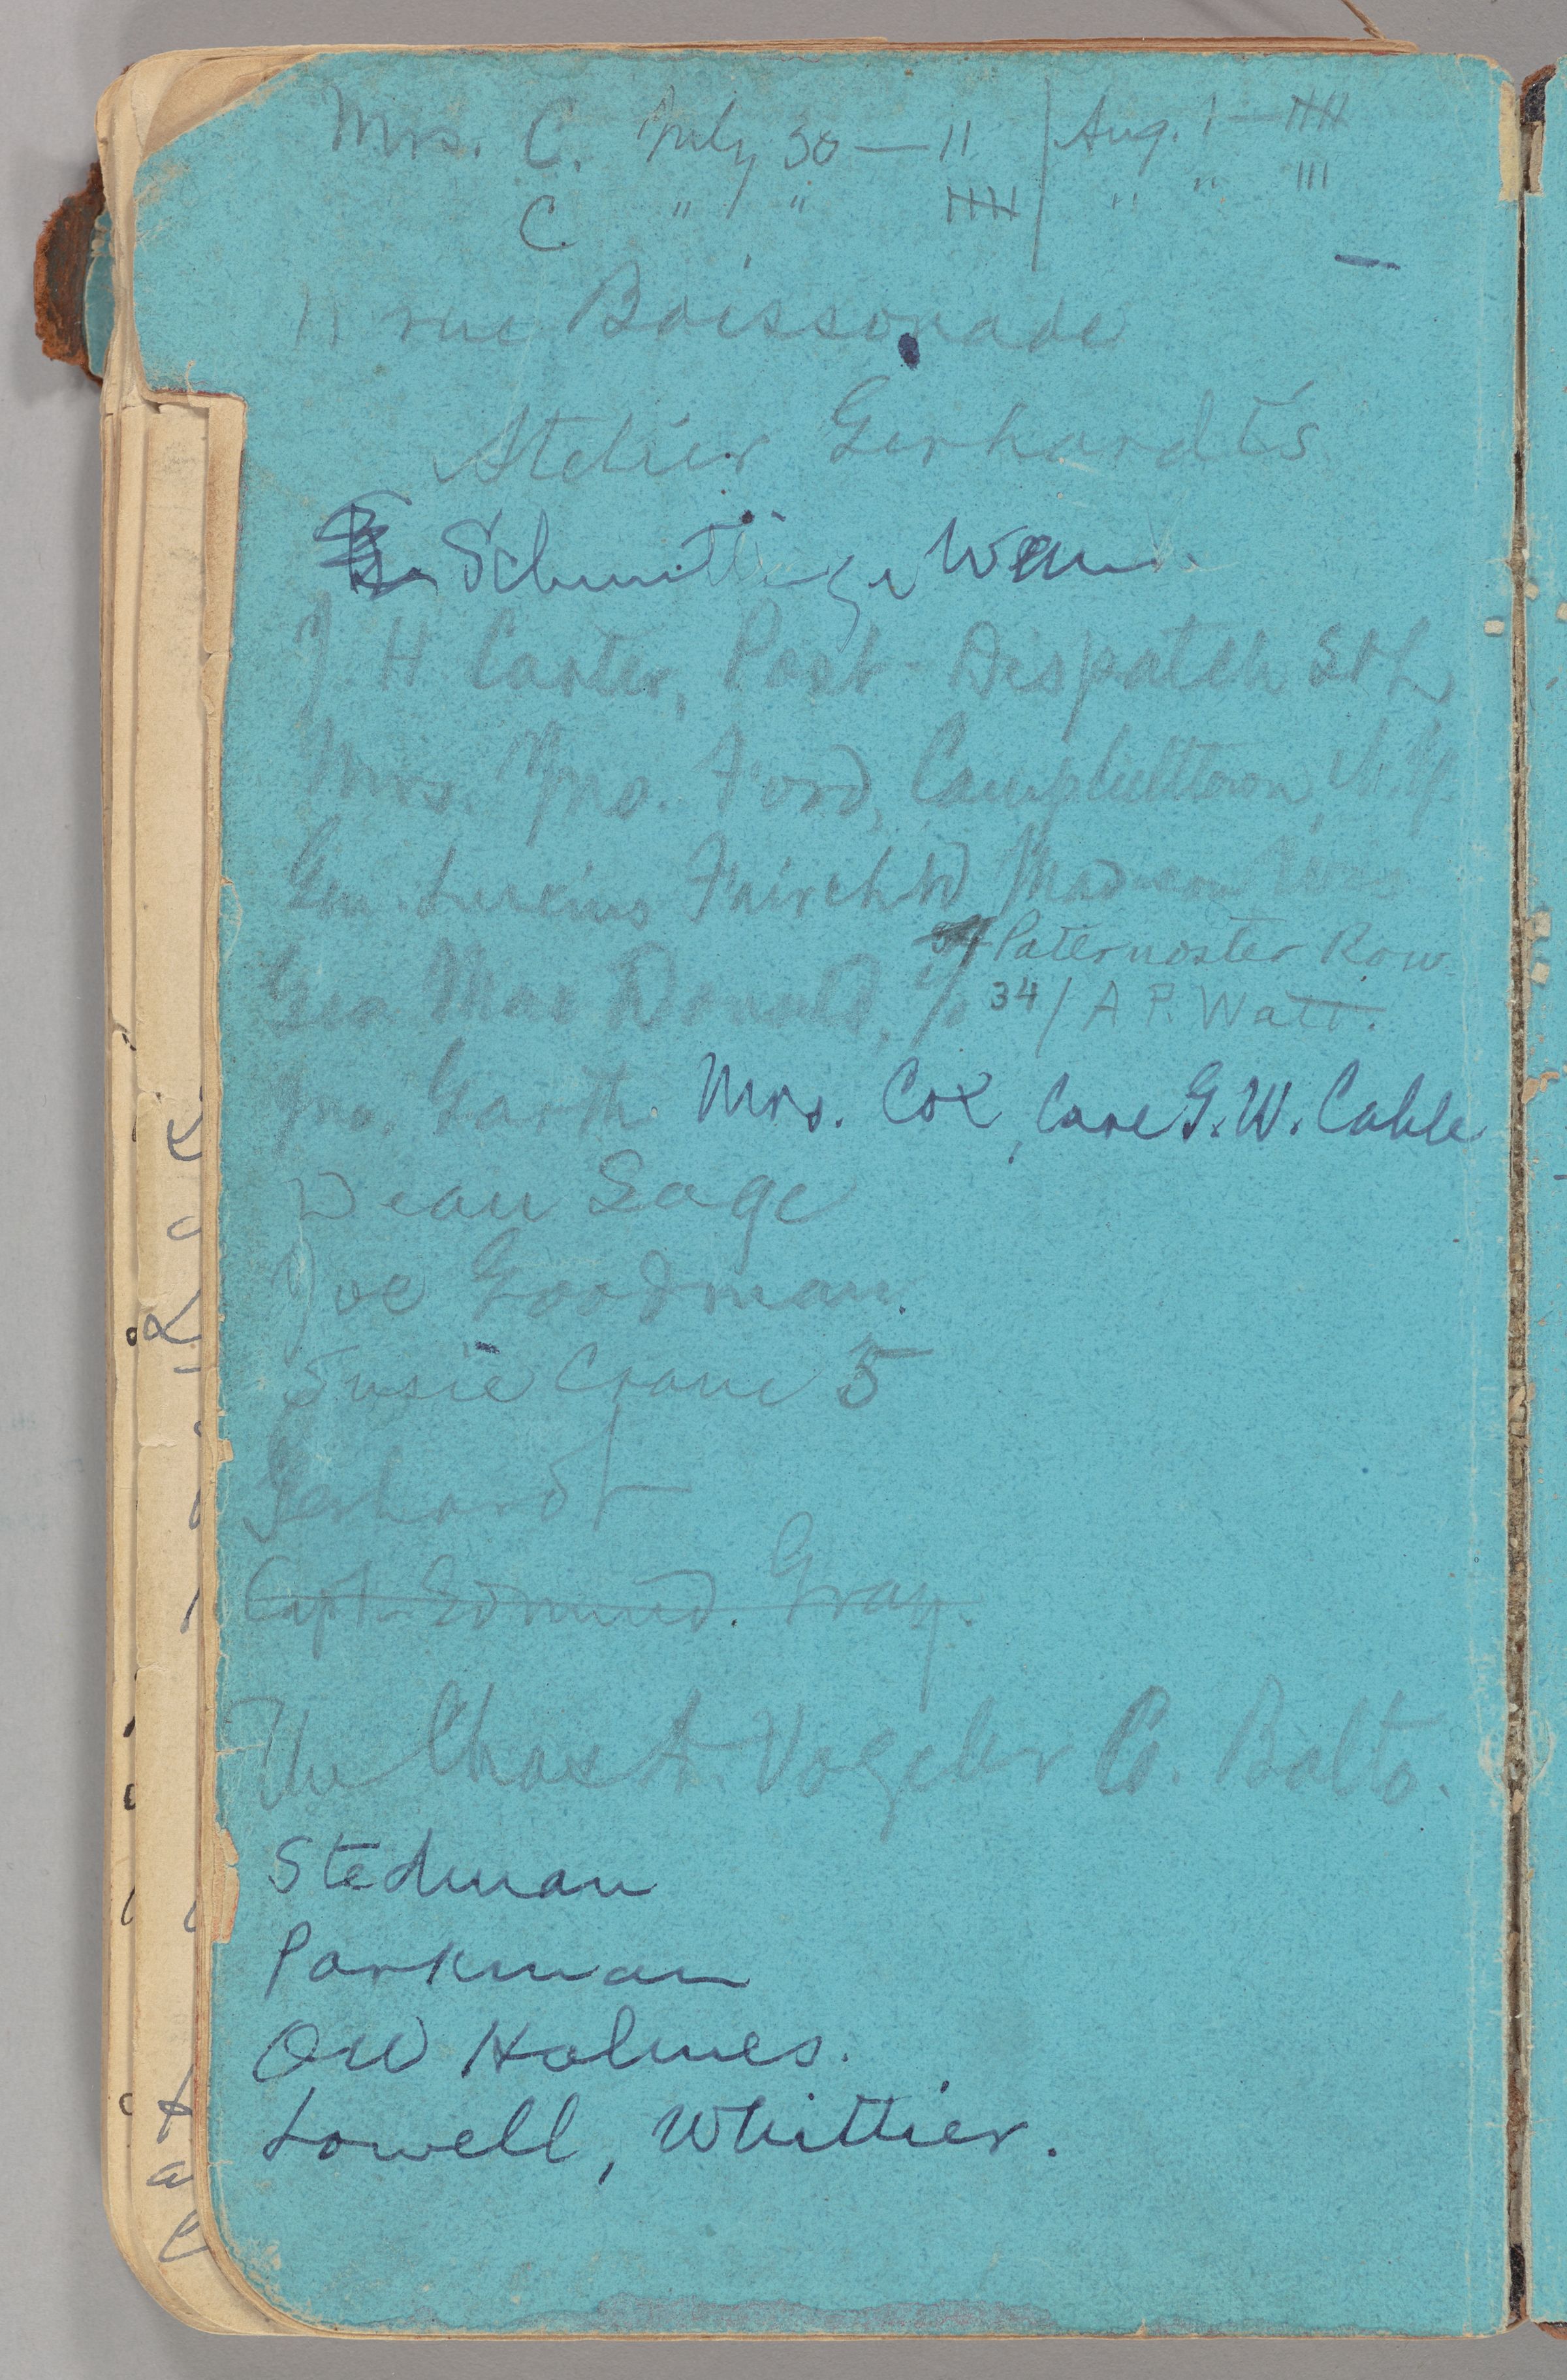 Mrs. C. July 30 — 11 | Aug. 1 — HHH
C " " HHH | " " III
11 rue Boissonade
Atelier Gerhardt's
J. H Carter, Post-Dispatch St L
Mrs. Jno. Ford, Campbelltown, N.Y.
Gen. Lucius Fairchild Madison Wis
Paternoster Row
Geo Mac Donald, c/o 34 / A P. Watt.
Jno. Garth. Mrs. Cox, Care G. W. Cable
Dean Sage
Joe Goodman.
Susie Crane 5
Gerhardt
Capt. Edmund Gray.
The Chas A. Vogeler Co. Balto.
Stedman
Parkman
OW Holmes.
Lowell, Whittier.